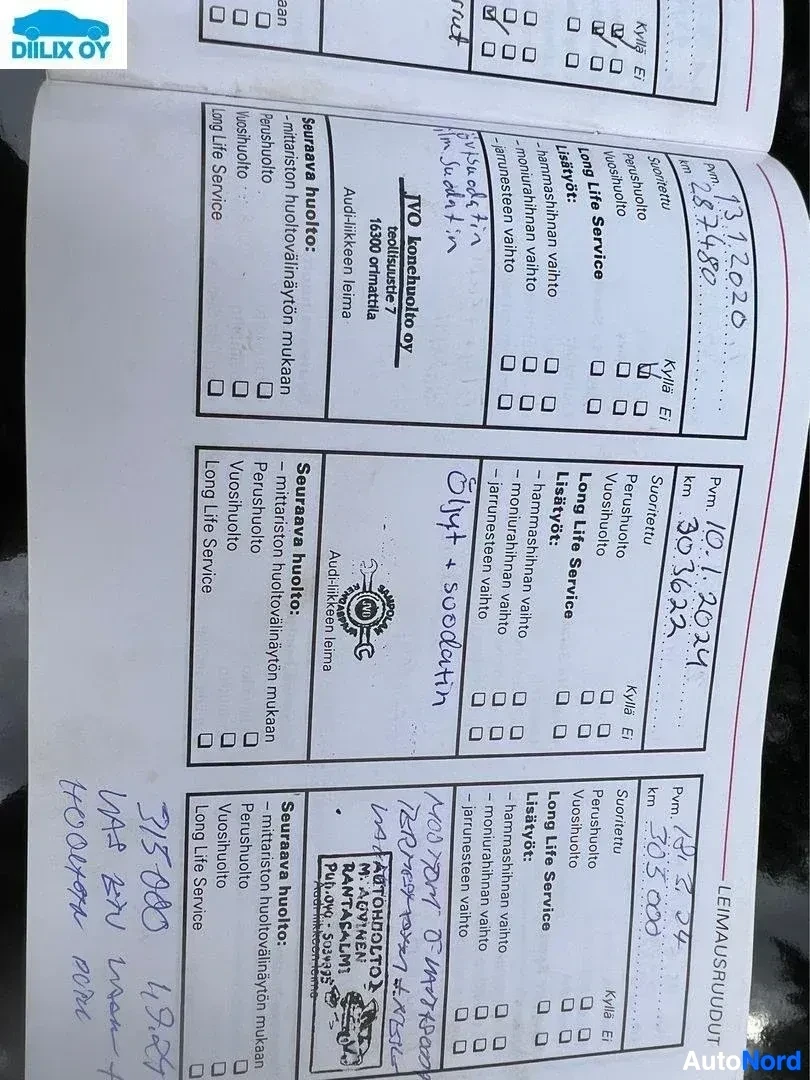 DIILIX OY
LEIMAUSRUUDUT
Kyllä Ei
Pvm. 13.1.2020
km 287480
Suoritettu Kyllä Ei
Perushuolto
Vuosihuolto
Long Life Service
Lisätyöt:
- hammashihnan vaihto
- moniurahihnan vaihto
- jarrunesteen vaihto
JVO konehuolto oy
teollisuustie 7
16300 orimattila
Audi-liikkeen leima
Seuraava huolto:
- mittariston huoltovälinäytön mukaan
Perushuolto
Vuosihuolto
Long Life Service
Pvm. 10.1.2024
km 303622
Suoritettu Kyllä Ei
Perushuolto
Vuosihuolto
Long Life Service
Lisätyöt:
- hammashihnan vaihto
- moniurahihnan vaihto
- jarrunesteen vaihto
Öljyt + suodatin
Audi-liikkeen leima
Seuraava huolto:
- mittariston huoltovälinäytön mukaan
Perushuolto
Vuosihuolto
Long Life Service
Pvm. 18.3.24
km 305000
Suoritettu Kyllä Ei
Perushuolto
Vuosihuolto
Long Life Service
Lisätyöt:
- hammashihnan vaihto
- moniurahihnan vaihto
- jarrunesteen vaihto
AUTOHUOLTO
RANTASALMI
Audi-liikkeen leima
Seuraava huolto:
- mittariston huoltovälinäytön mukaan
Perushuolto
Vuosihuolto
Long Life Service
315000
AutoNord